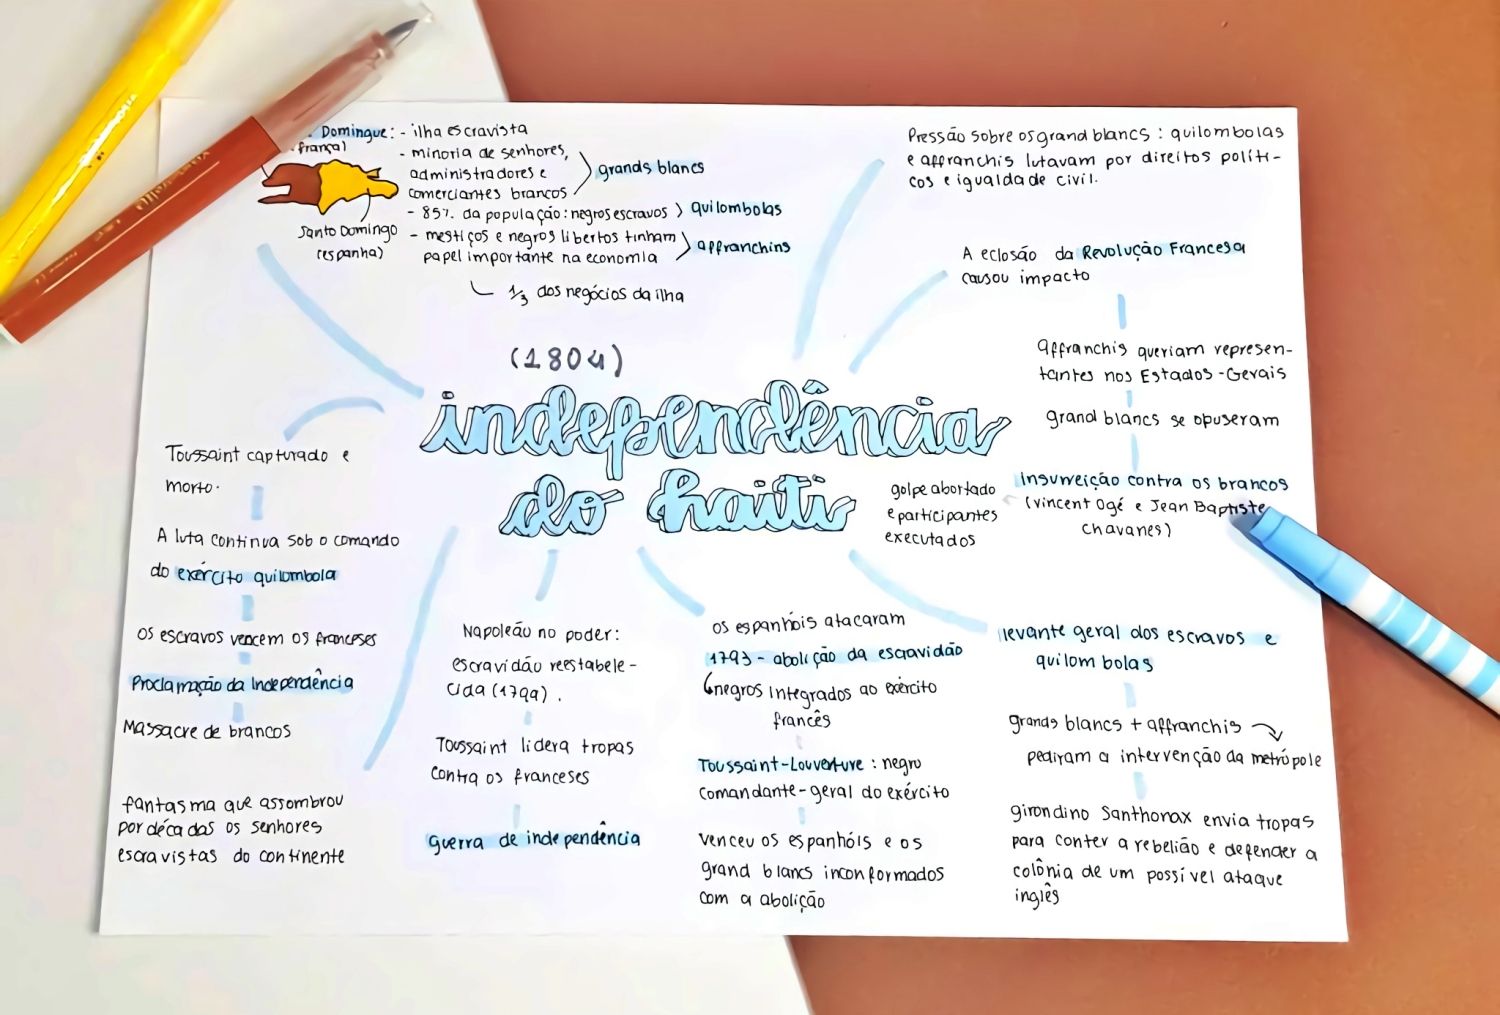 Domingue: - ilha escravista
França)
- minoria de senhores,
administradores e
comerciantes brancos
grands blancs
- 85% da população: negros escravos
quilombolas
- mestiços e negros libertos tinham
papel importante na economia
affranchins
1/3 dos negócios da ilha
Santo Domingo
(espanha)
Pressão sobre os grand blancs: quilombolas
e affranchis lutavam por direitos políti-
cos e igualdade civil.
A eclosão da Revolução Francesa
causou impacto
affranchis queriam represen-
tantes nos Estados-Gerais
grand blancs se opuseram
Insurreição contra os brancos
(Vincent Ogé e Jean Baptiste
Chavanes)
golpe abortado
e participantes
executados
(1804)
independência
do haiti
levante geral dos escravos e
quilombolas
grands blancs + affranchis
pediram a intervenção da metrópole
girondino Santhonax envia tropas
para conter a rebelião e defender a
colônia de um possível ataque
inglês
os espanhóis atacaram
1793 - abolição da escravidão
negros integrados ao exército
francês
Toussaint-Louverture: negro
comandante-geral do exército
venceu os espanhóis e os
grand blancs inconformados
com a abolição
Napoleão no poder:
escravidão reestabele-
cida (1799).
Toussaint lidera tropas
contra os franceses
guerra de independência
Toussaint capturado e
morto.
A luta continua sob o comando
do exército quilombola
os escravos vencem os franceses
Proclamação da Independência
Massacre de brancos
fantasma que assombrou
por décadas os senhores
escravistas do continente